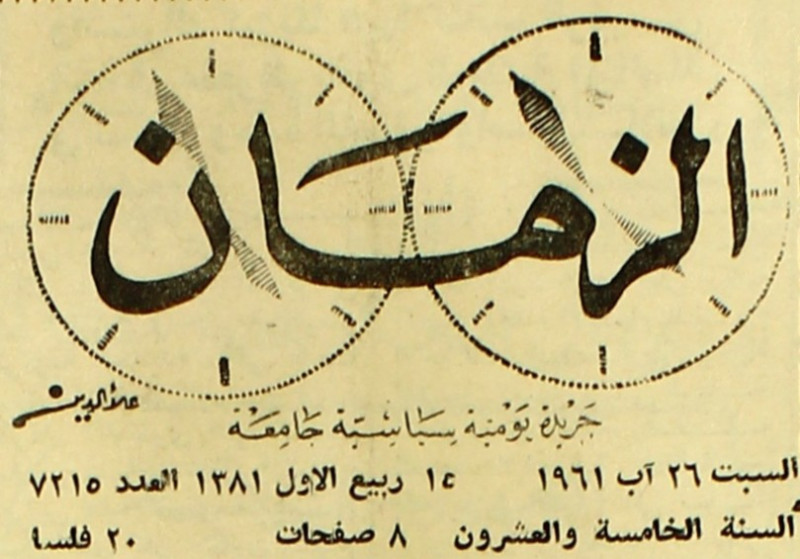 الزمان
علاء الدين
جريدة يومية سياسية جامعة
السبت ٢٦ آب ١٩٦١ ١٥ ربيع الاول ١٣٨١ العدد ٧٢١٥
السنة الخامسة والعشرون ٨ صفحات ٢٠ فلسا